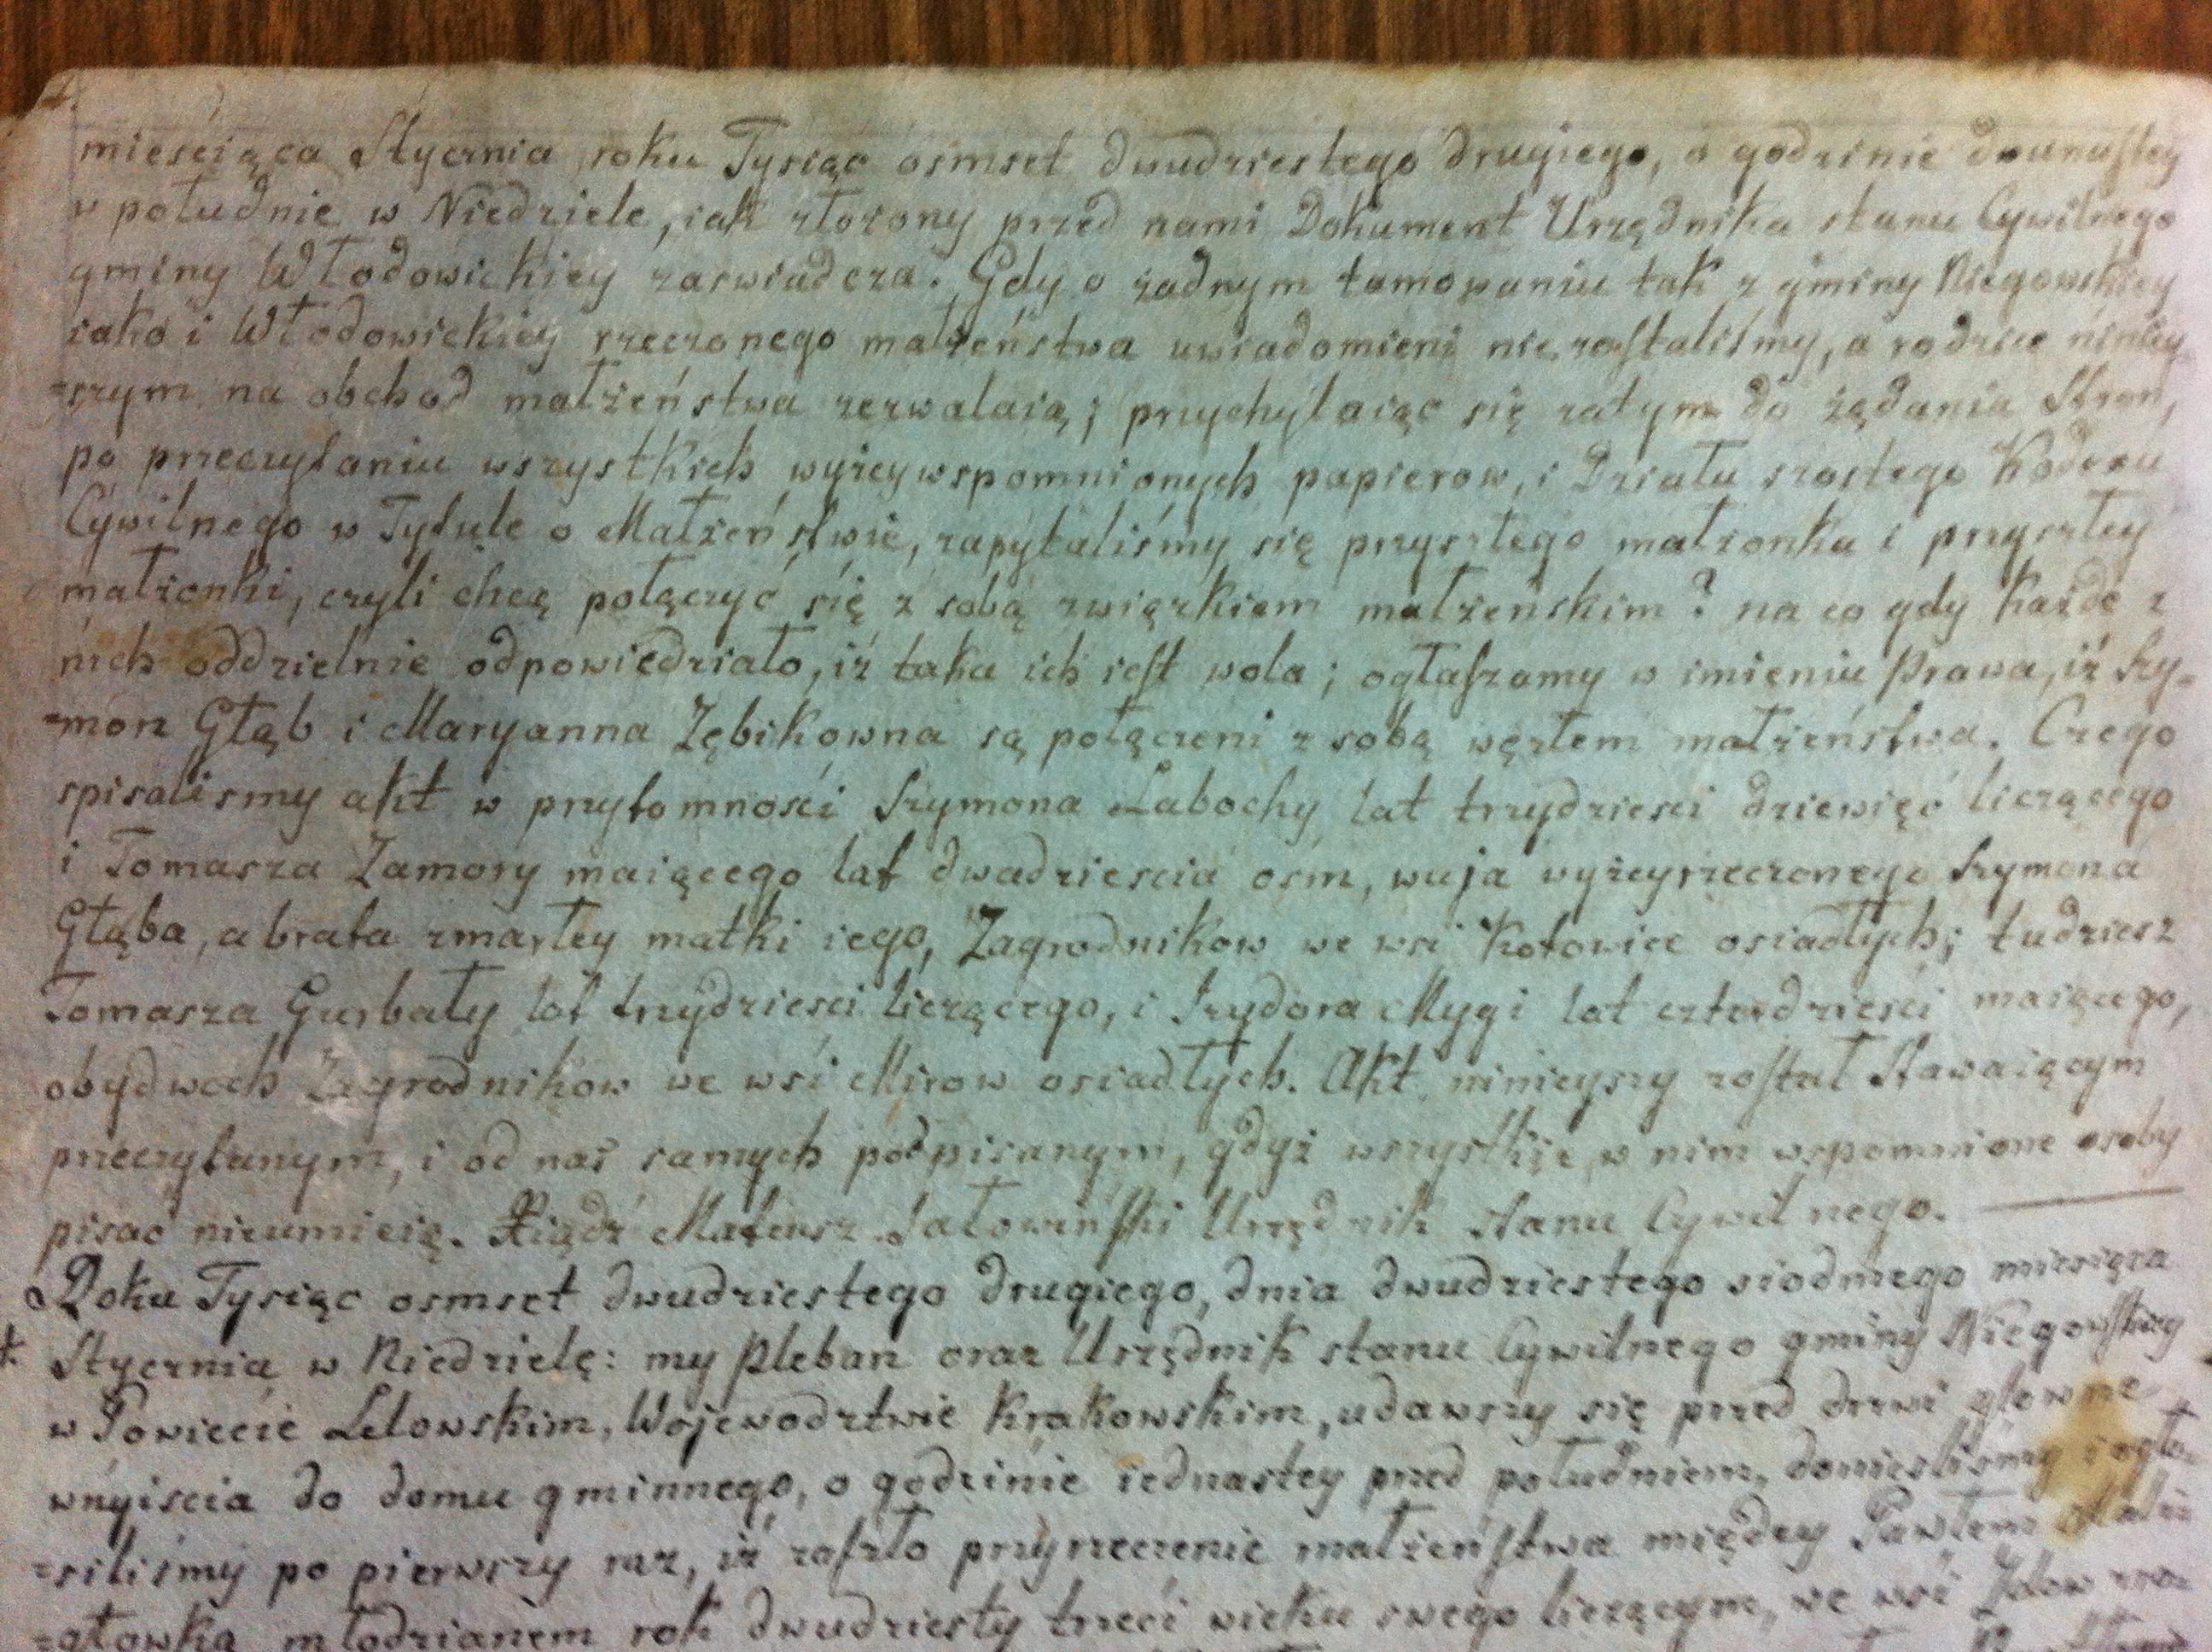 miesciąca Stycznia roku Tysiąc osmset dwudziestego drugiego, o godzinie dwunastey
w południe w Niedziele, iak złożony przed nami Dokument Urzędnika stanu Cywilnego
gminy Włodowickiey zaswiadcza. Gdy o żadnym tamowaniu tak z gminy Niegowskiey
iako i Włodowickiey rzeczonego małżeństwa uwiadomieni nie zostaliśmy, a rodzice niniey-
-szym na obchod małżeństwa zezwalaią; przychylaiąc się zatym do żądania Stron,
po przeczytaniu wszystkich wyżey wspomnionych papierow, i Działu szostego Kodexu
Cywilnego w Tytule o Małżeństwie, zapytaliśmy się przyszłego małżonka i przyszłey
małżonki, czyli chcą połączyć się z sobą związkiem małżeńskim? na co gdy każde z
nich oddzielnie odpowiedziało, iż taka ich iest wola; ogłaszamy w imieniu Prawa, iż Szy-
-mon Głąb i Maryanna Zębikowna są połączeni z sobą węzłem małżeństwa. Czego
spisalismy akt w przytomności Szymona Łabochy lat trzydziesci dziewięć liczącego
i Tomasza Zamory maiącego lat dwadziescia osm, wuja wyżeyrzeczonego Szymona
Głąba, a brata zmarłey matki iego, Zagrodnikow we wsi Kotowice osiadłych; tudziesz
Tomasza Gurbały lat trzydziesci liczącego, i Izydora Mygi lat czterdziesci maiącego,
obydwoch Zagrodnikow we wsi Mirow osiadłych. Akt ninieyszy został Stawaiącym
przeczytanym, i od nas samych podpisanym, gdyż wszystkie w nim wspomnione osoby
pisac nieumieią. Xiądz Mateusz Urzędnik stanu Cywilnego.
Roku Tysiąc osmset dwudziestego drugiego, dnia dwudziestego siodmego miesiąca
Stycznia w Niedzielę: my Pleban oraz Urzędnik stanu Cywilnego gminy Niegowskiey
w Powiecie Lelowskim, Wojewodztwie Krakowskim, udawszy się przed drzwi głowne
wnyiscia do domu gminnego, o godzinie iednastey przed południem, donieslismy i ogło-
-siliśmy po pierwszy raz, iż zaszło przyrzeczenie małżeństwa między Pawłem
młodzianem rok dwudziesty trzeci wieku swego liczącym, we wsi